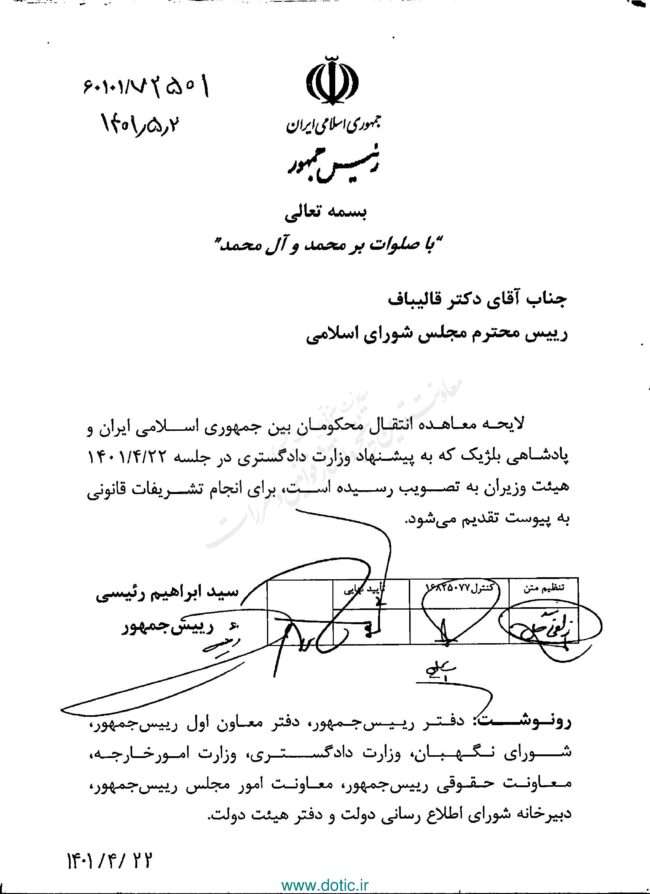 ۶۰۱۰۱/۷۲۵۰۱
۱۴۰۱٫۵٫۲
جمهوری اسلامی ایران
رئیس جمهور
بسمه تعالی
“با صلوات بر محمد و آل محمد”
جناب آقای دکتر قالیباف
رییس محترم مجلس شورای اسلامی
لایحه معاهده انتقال محکومان بین جمهوری اسلامی ایران و
پادشاهی بلژیک که به پیشنهاد وزارت دادگستری در جلسه ۱۴۰۱/۴/۲۲
هیئت وزیران به تصویب رسیده است، برای انجام تشریفات قانونی
به پیوست تقدیم می‌شود.
تنظیم متن
کنترل ۱۶۸۲۵۰۷۷
تأیید نهایی
سید ابراهیم رئیسی
رییس‌جمهور
رونوشت: دفتر رییس‌جمهور، دفتر معاون اول رییس‌جمهور،
شورای نگهبان، وزارت دادگستری، وزارت امورخارجه،
معاونت حقوقی رییس‌جمهور، معاونت امور مجلس رییس‌جمهور،
دبیرخانه شورای اطلاع رسانی دولت و دفتر هیئت دولت.
۱۴۰۱/۴/۲۲
www.dotic.ir